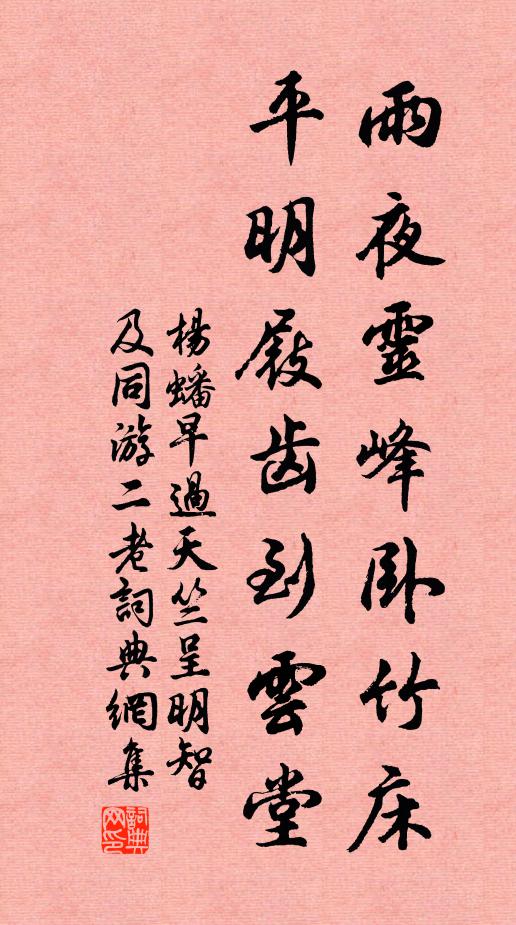 雨夜靈峰卧竹床
平明屐齿到雲堂
楊蟠早過天竺呈明智
及同游二老詞典網集
詞典网印